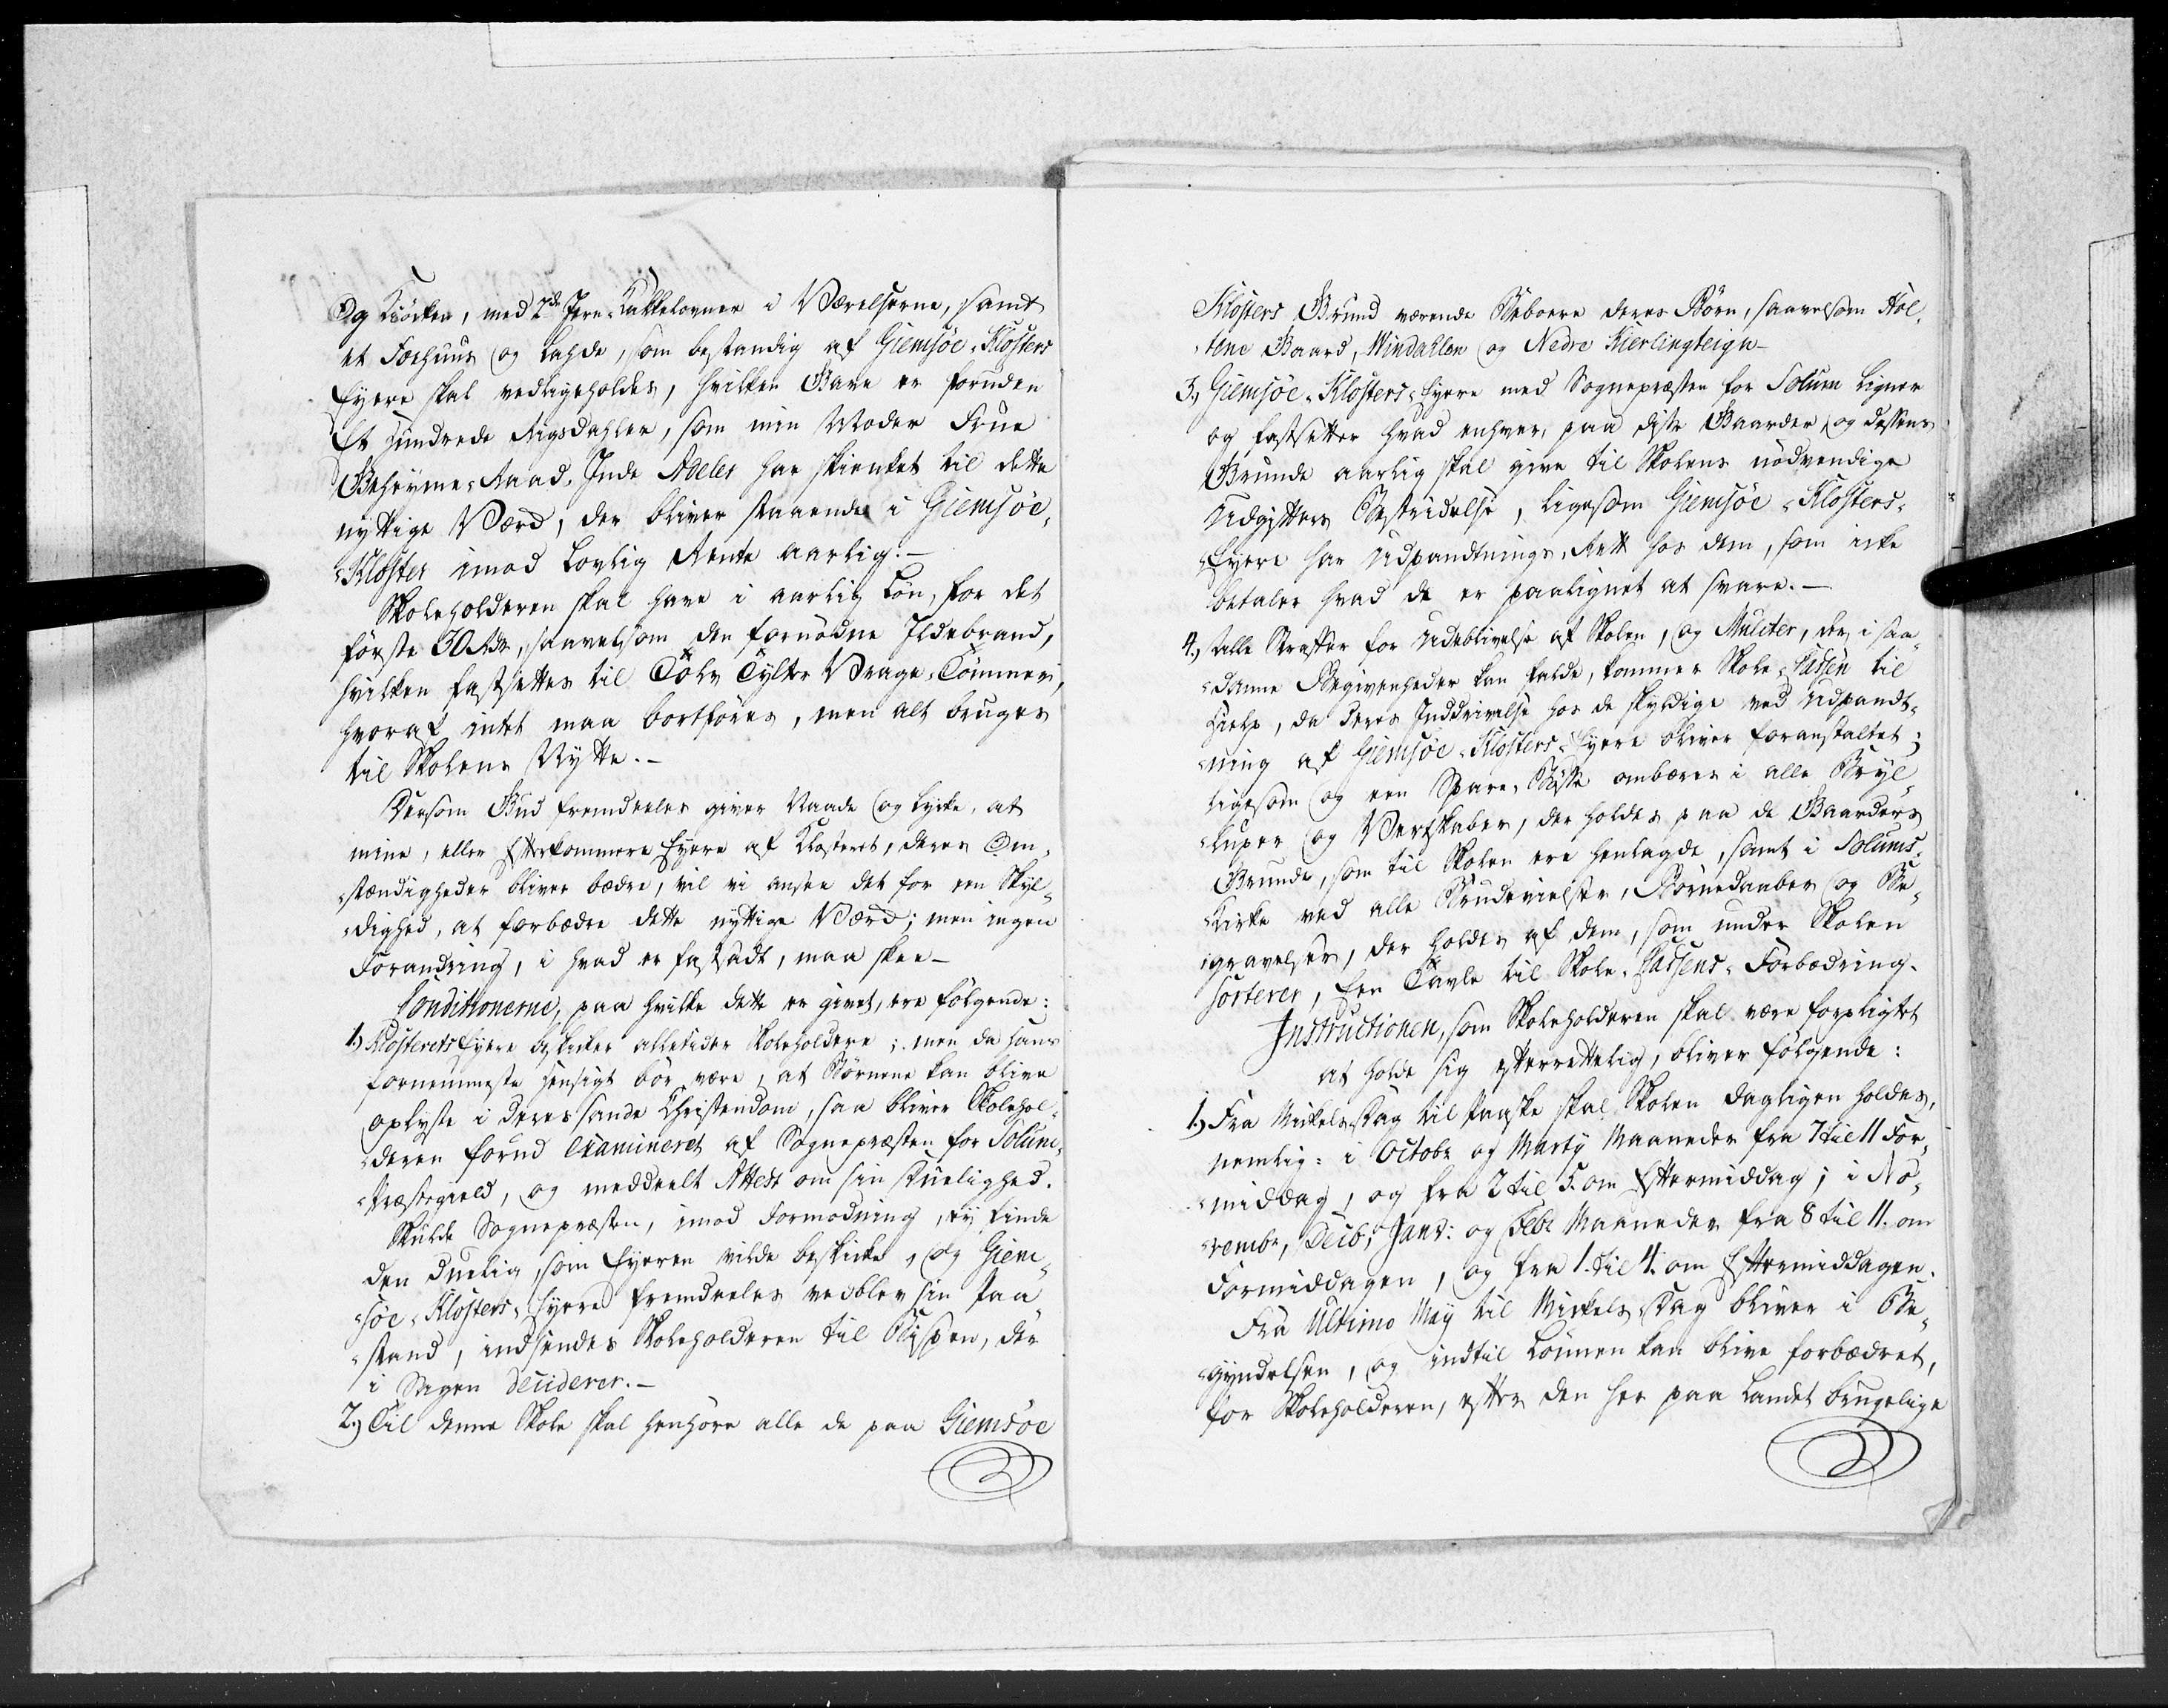 Og Kiöcken, med 2de Jern-Kakkelovner i Værelserne, samt
et Foehuus og Lahde, som bestandig af Giemsöe-Klosters
Eyere skal vedligeholdes, hvilken Gave er foruden
Et Hundrede Rigsdahler, som min Moder Frue
Geheyme-Raad. Inde Adeler har skienket til dette
nyttige Værck, der bliver staaende i Giemsöe-
Kloster imod Lovlig Rente aarlig.-
Skoleholderen skal have i aarlig Lön, for det
förste 30 Rdr, saavelsom den fornödne Ildebrand,
hvilken fastsettes til Tolv Tylter Vrage-Tömmer,
hvoraf intet maa bortföres, men alt bruges
til Skolens Nytte.-
Dersom Gud fremdeeles giver Naade og Lycke, at
mine, eller Efterkommere Eyere af Klosteret, deres Om-
stændigheder bliver bædre, vil vi ansee det for een Skyl-
dighed, at forbædre dette nyttige Værck; men ingen
Forandring, i hvad er fastsadt, maa skee-
Conditionerne, paa hvilke dette er givet, ere fölgende:
1.) Klosterets Eyere beskicker alletider Skoleholdere; men da hans
fornemmeste Hensigt bör være, at Börnene kan blive
oplyste i deres sande Christendom, saa bliver Skolehol-
deren forud examineret af Sognepræsten for Solums
Præstegield, og meddeelt Attest om sin Duelighed.
Skulde Sognepræsten, imod Formodning, ey finde
den duelig, som Eyeren vilde beskicke, og Giem-
söe-Klosters-Eyere fremdeeles vedblev sin Paa-
stand, indsendes Skoleholderen til Bispen, der
i Sagen deciderer.-
2.) Til denne Skole skal henhöre alle de paa Giemsöe
Klosters Grund værende Beboere deres Börn, saavelsom Hol-
tene Gaard, Mindahlen og Nedre Kierlingteign-
3.) Giemsöe-Klosters-Eyere med Sognepræsten for Solum ligner
og fastsetter hvad enhver, paa disse Gaarder og dessens
Grunde aarlig skal give til Skolens nödvendige
Udgifters Bestridelse, ligesom Giemsöe-Klosters-
Eyere har Udpandtnings-Rett hos dem, som icke
betaler hvad de er paalignet at svare.-
4.) Alle Straffer for Udeblivelse af Skolen, og Mulcter, der i saa-
danne Begivenheder kan falde, kommer Skole-Cassen til
Hielp, da deres Inddrivelse hos de skyldige ved Udpandt-
ning af Giemsöe-Klosters-Eyere bliver foranstaltet;
ligesom og een Spare-Bösse ombæres i alle Bryl-
luper og Vertskaber, der holdes paa de Gaarders
Grunde, som til Skolen ere henlagde, samt i Solums-
Kirke ved alle Brudevielser, Börnedaaber og Be-
gravelser, der holdes af dem, som under Skolen
sorterer, Een Tavle til Skole-Cassens-Forbædring.
Instructionen, som Skoleholderen skal være forpligtet
at holde sig efterrettelig, bliver fölgende:
1.) Fra Mickels-Dag til Paaske skal Skolen dagligen holdes,
nemlig: i Octobr og Marty Maaneder fra 7 til 11 For-
middag, og fra 2 til 5. om Eftermiddag; i No-
vembr, Decbr, Janr: og Febr Maaneder fra 8 til 11. om
Formiddagen, og fra 1. til 4. om Eftermiddagen.
Fra Ultimo May til Mickels-Dag bliver i Be-
gyndelsen, og indtil Lönnen kan blive forbædret,
for Skoleholderen, efter den her paa Landet brugelige